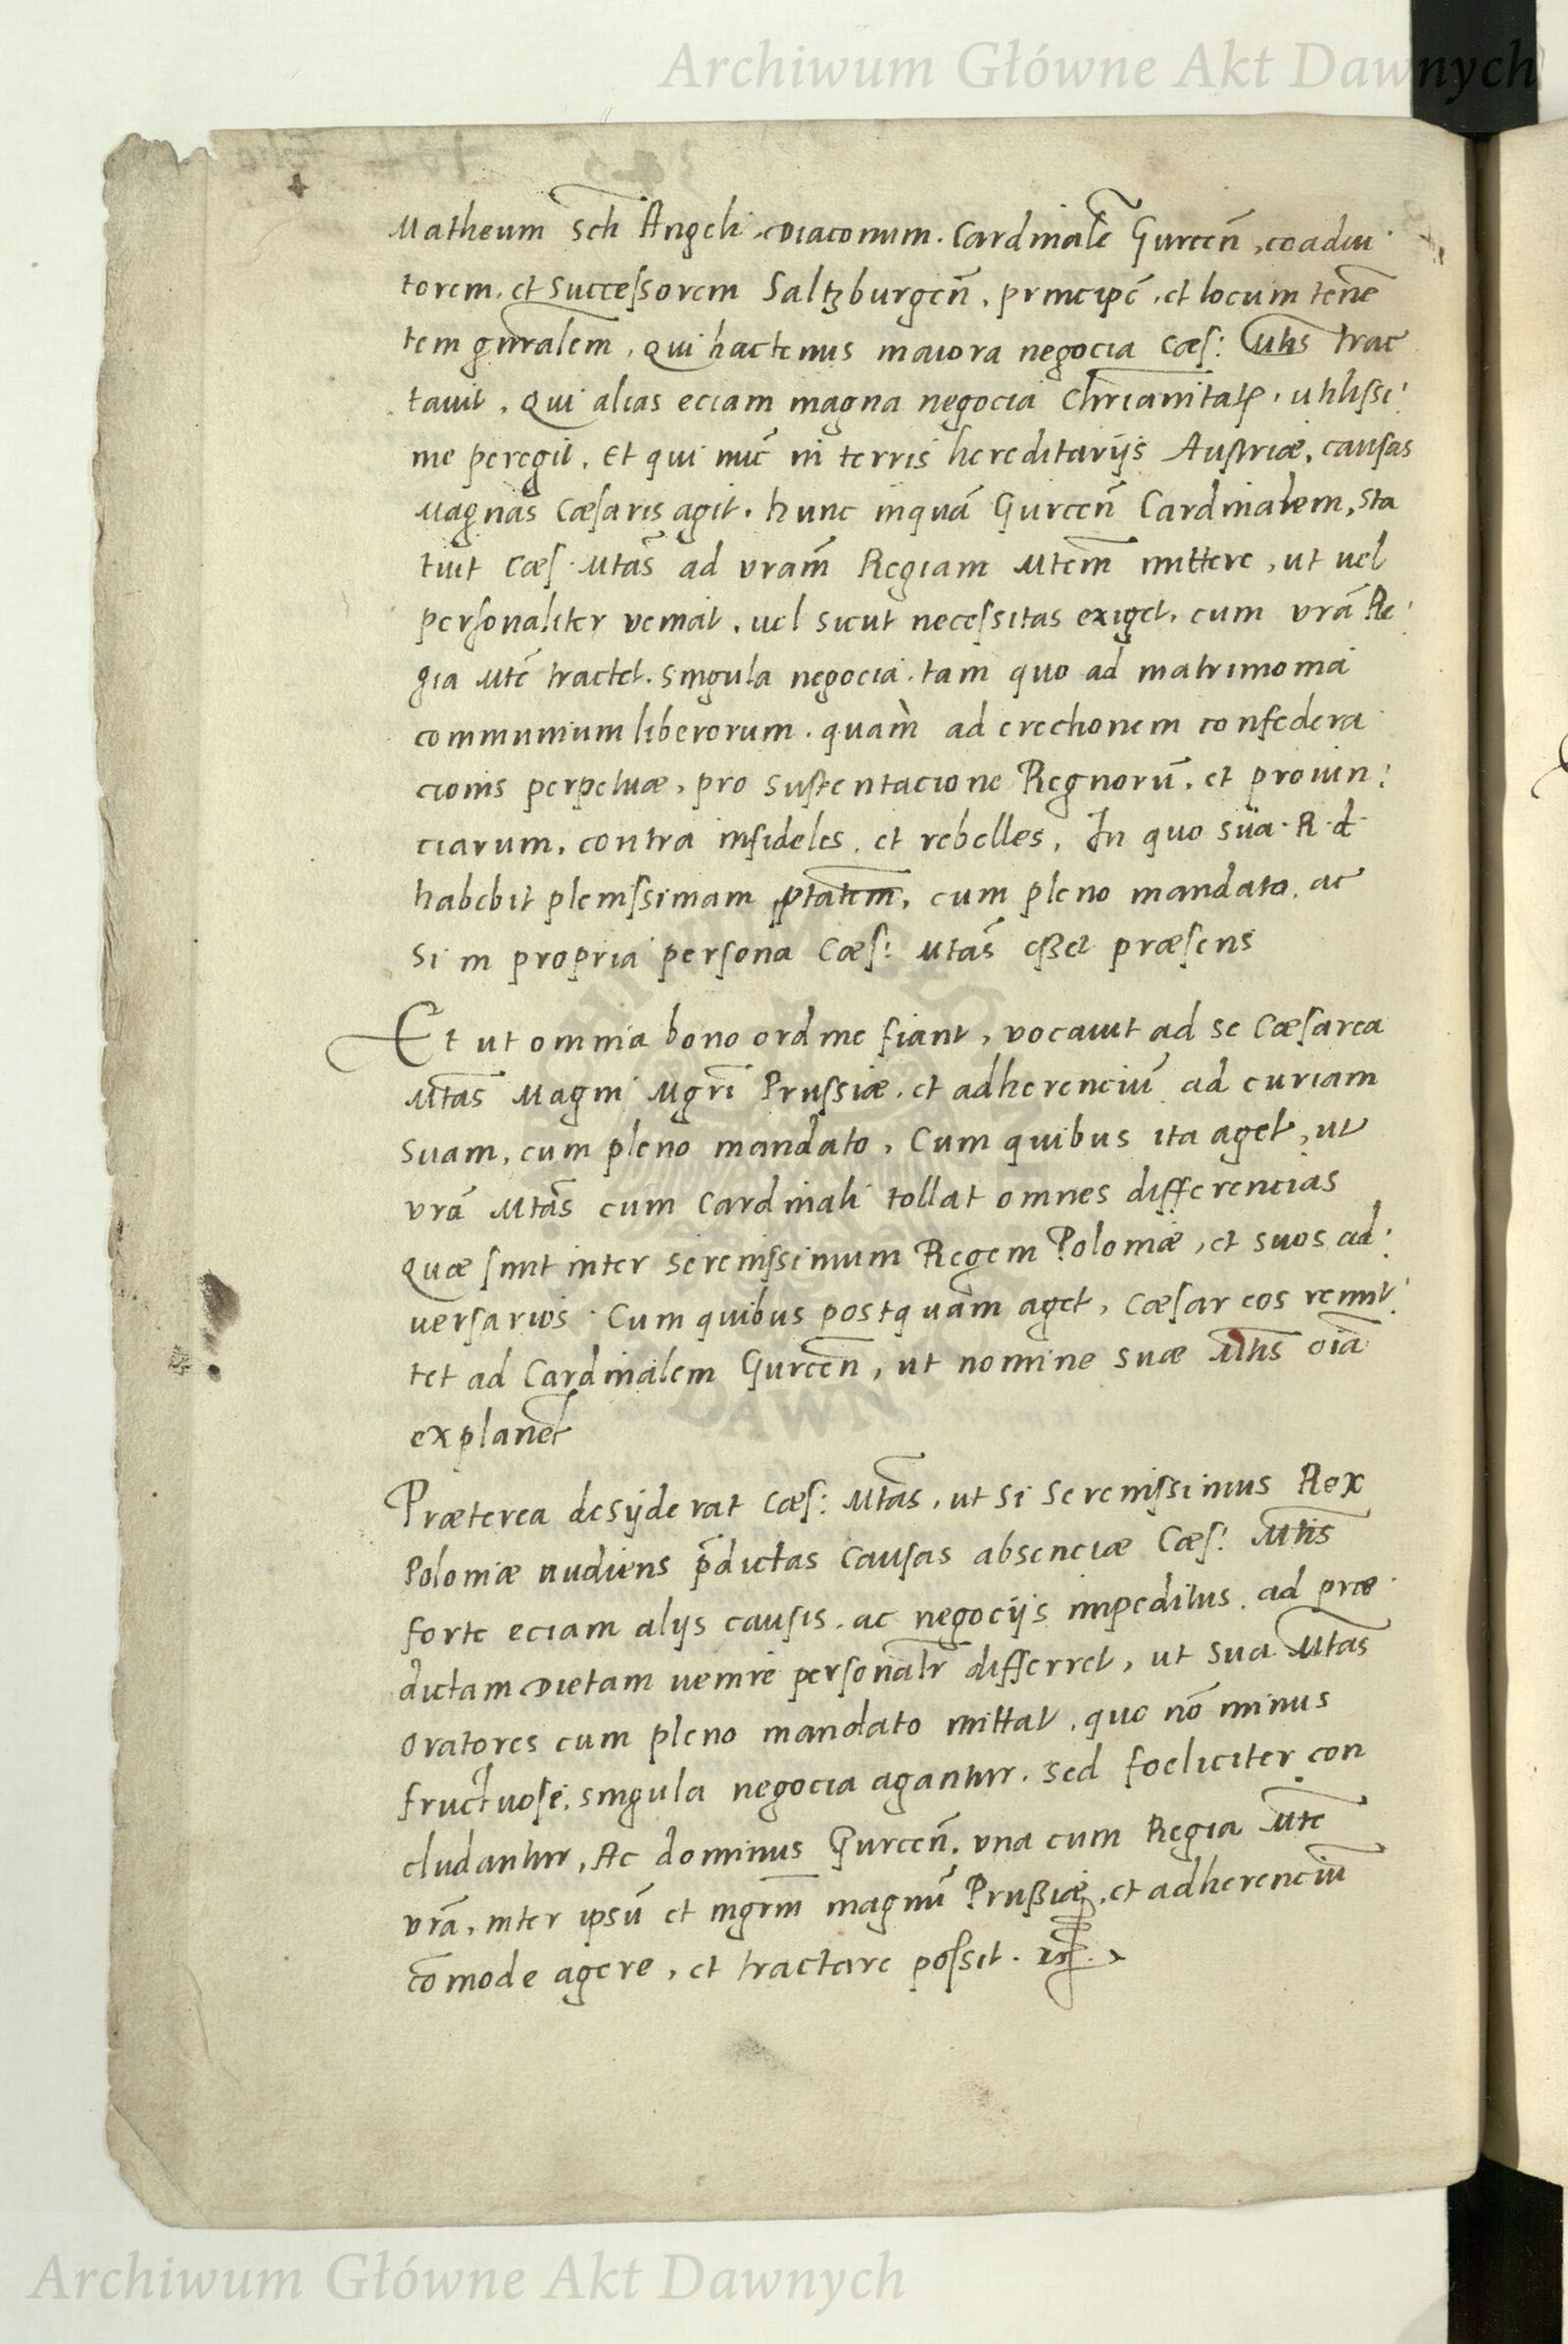 Archiwum Główne Akt Dawnych
Matheum Scti Angeli Diaconum. Cardinalē Gurcen̄, coadiu
torem, et Successorem Saltzburgen̄, principē, et locum tenen̄
tem gn̄ralem, Qui hactenus maiora negocia Cæs: Mtis trac
tauit, Qui alias eciam magna negocia Chr̄ianitatꝭ, utilissi
me peregit, Et qui nūc in terris hereditarijs Austriæ, causas
Magnas Cæsaris agit. hunc inquā Gurcen̄ Cardinalem, Sta
tuit Cæs. Mtas̄ ad vram̄ Regiam Mtem̄ mittere, ut vel
personaliter veniat, vel sicut necessitas exiget, cum vrā Re
gia Mte tractet. Singula negocia. tam quo ad matrimonia
communium liberorum. quàm ad erectionem confedera
cionis perpetuæ, pro Sustentacione Regnorū, et prouin:
ciarum, contra infideles, et rebelles, In quo sua. R. d.
habebit plenissimam ptatem̄, cum pleno mandato, ac
Si in propria persona Cæs: Mtas̄ eßet præsens
Et ut omnia bono ordine fiant, vocauit ad se Cæsarea
Mtas Magni Mgri Prussiæ, et adherenciū ad curiam
Suam, cum pleno mandato, Cum quibus ita aget, ut
vrā Mtas̄ cum Cardinali tollat omnes differencias
Quæ sunt inter Serenissimum Regem Poloniæ, et suos ad:
uersarios. Cum quibus postquàm aget, Cæsar eos remit:
tet ad Cardinalem Gurcen̄, ut nomine Suæ Mtis oīa
explanet
Præterea desyderat Cæs: Mtas, ut Si Serenissimus Rex
Poloniæ audiens p̄dictas causas absenciæ Cæs: Mtis
forte eciam alijs causis, ac negocijs impeditus, ad præ
dictam Dietam uenire personalr̄ differret, ut Sua Mtas
Oratores cum pleno mandato mittat, quo nō minus
fructuose, singula negocia agantur. Sed foeliciter con
cludantur, Ac dominus Gurcen̄, vna cum Regia Mte
vrā, inter ipsū et mgrm̄ magnū Prußiæ, et adherenciū
cōmode agere, et tractare possit.
Archiwum Główne Akt Dawnych